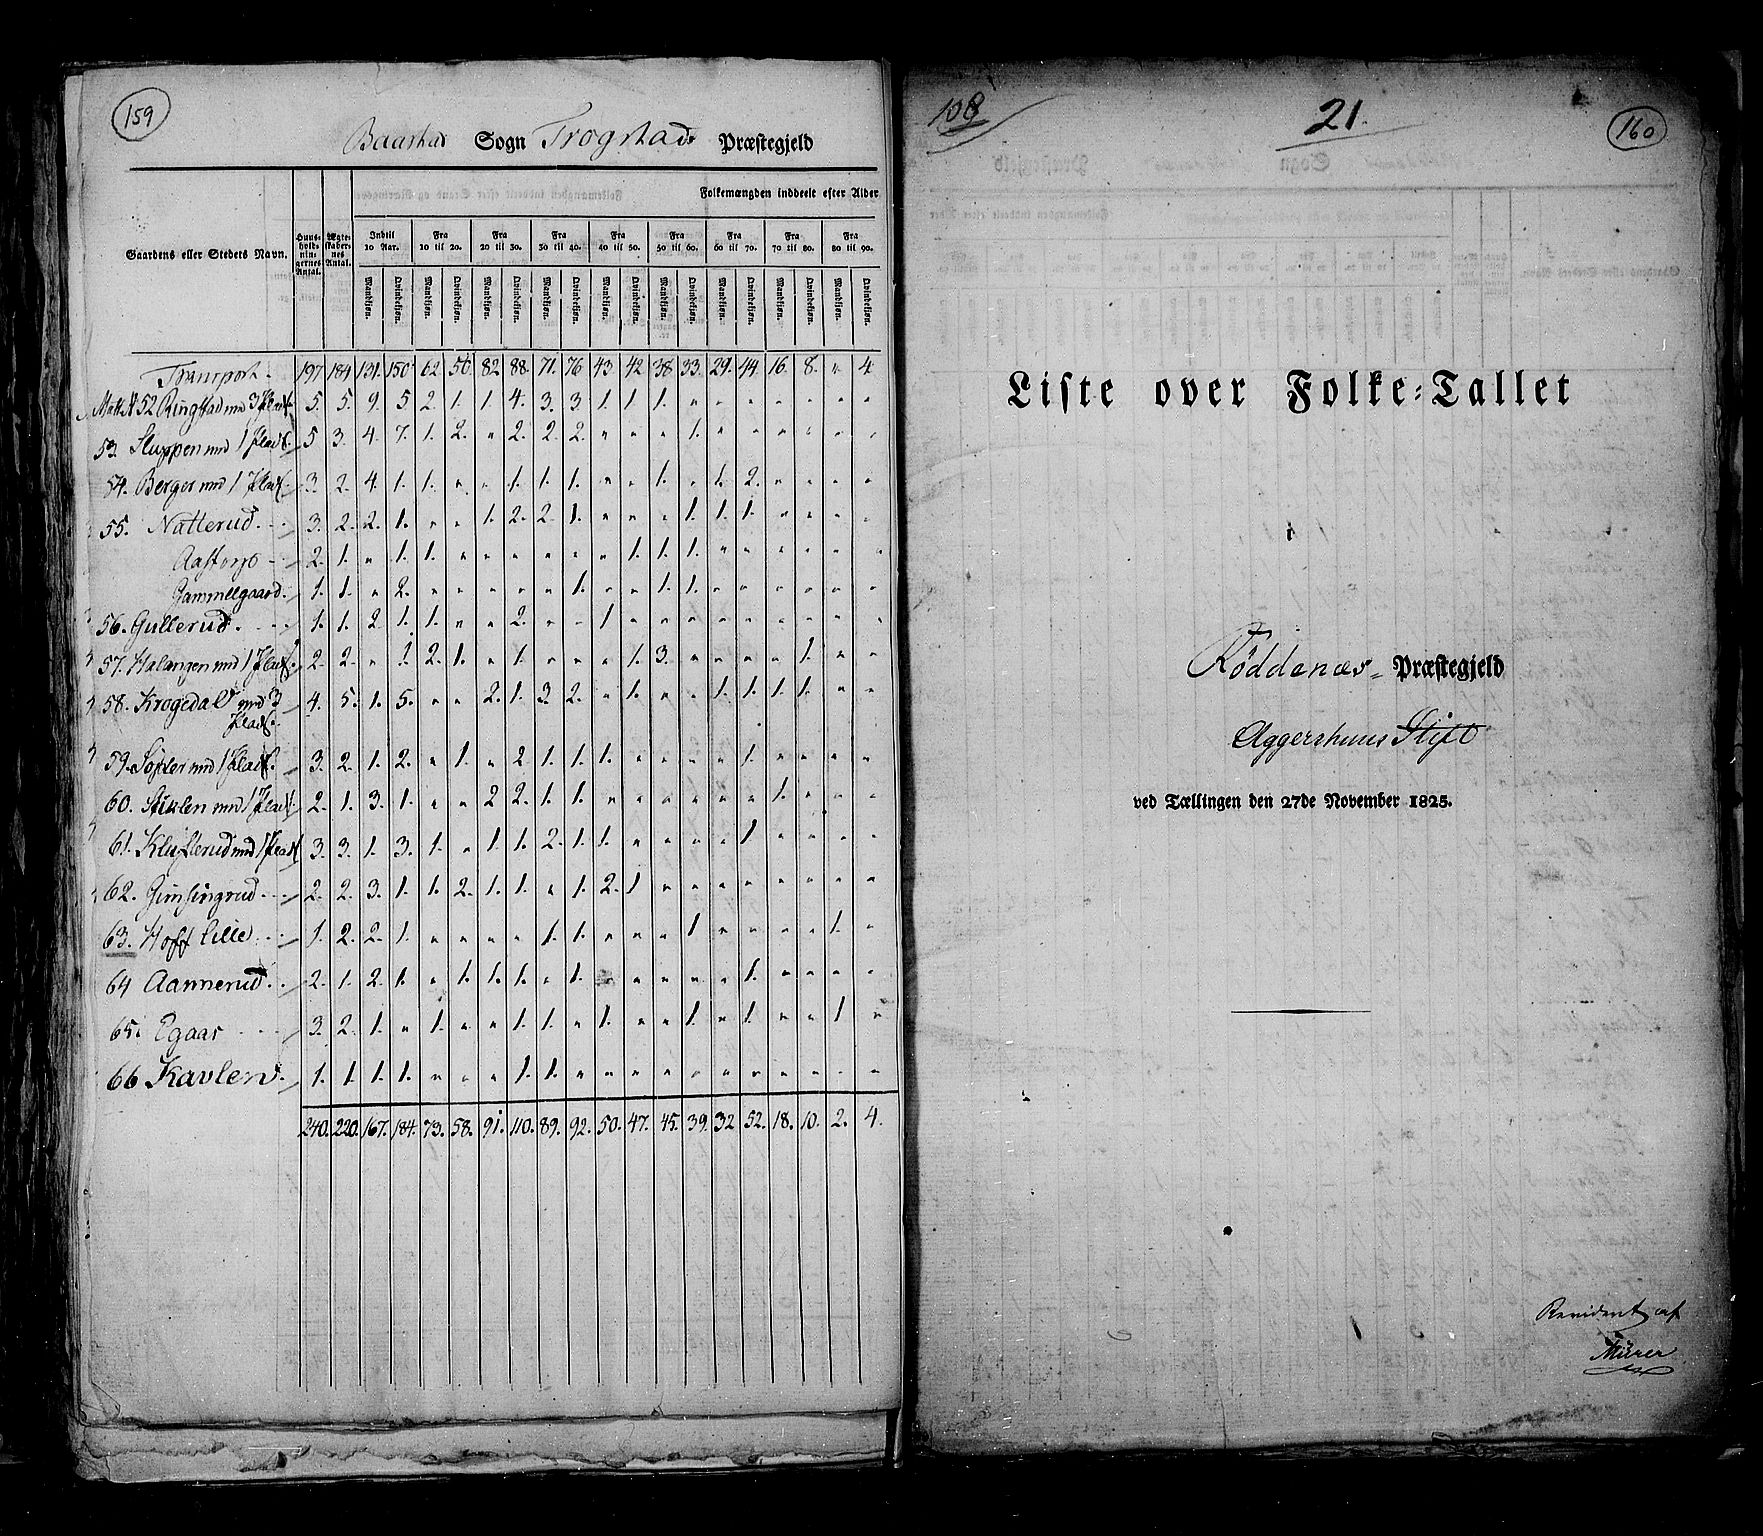 159
Baastad Sogn Trøgstads Præstegjeld
Gaardens eller Stedets Navn.
Huus-holdnin-gernes Antal.
Ægte-skaber-nes Antal.
Folkemængden inddeelt efter Alder
Indtil 10 Aar. Fra 10 til 20. Fra 20 til 30. Fra 30 til 40. Fra 40 til 50. Fra 50 til 60. Fra 60 til 70. Fra 70 til 80. Fra 80 til 90.
Mandkiøn. Qvindekiøn. Mandkiøn. Qvindekiøn. Mandkiøn. Qvindekiøn. Mandkiøn. Qvindekiøn. Mandkiøn. Qvindekiøn. Mandkiøn. Qvindekiøn. Mandkiøn. Qvindekiøn. Mandkiøn. Qvindekiøn. Mandkiøn. Qvindekiøn.
Transport. 197 184 131. 150 62. 56. 82 88. 71. 76 43. 42 38 33. 29. 44. 16. 8. " 4.
Matr. No 52 Ringstad med 3 Plads. 5. 5. 9. 5. 2. 1. 1. 4. 3. 3. 1. 1 1. " " " " " " "
53. Sluppen med 1 Plads. 5 3. 4. 7. 1. 2. " 2. 2. 2. " " " 1. " " " " " "
54. Berger med 1 Plads. 3. 2. 4. 1. 1. " " 1. 1. 1. " " 1. " 1. 2. " " " "
55. Natterud. 3. 2. 2. 1. " " 1. 2. 2. 1. " " " 1. 1. 1. " " " "
Aastorp 2. 1. " 1. 1. " " " " " " 1. 1. 1. " " " " " "
Gammelgaard. 1. 1. " 2. " " " " " 1. " " 1. 1. " " " " " "
56. Gullerud. 1. 1. 2. 1. 1. " " 2. " " 1 " " " " " " " " "
57. Halangen med 1 Plads. 2. 2. " 1. 2. 1. " 1. " " " 1. 3. " " " " 1. " "
58. Krogedal med 3 Plads. 4. 5. 1. 5. " " 2. 1. 3. 2. " 1. " " 1. 1. 1. 1. " "
59. med 1 Plads. 3. 2. 1. 2. " 1. " 2 1. 1. 1. " " " " 1. " " " "
60. med 1 Plads. 2. 1. 3. 1. " " 2 2. 1. 1. " " " " " " 1. " " "
61. med 1 Plads 3. 3. 1. 3. 1. " 1. 1. 2. 1. 1. " " " " 1 " " " "
62. Gimsingrud 2. 2. 3. 1. 1. 2. 1. 1. " 1. 2. 1 " " " " " " " "
63. Hoff lille 1. 2. 2. 1. " " " " 1. 1. " " " 1. " " " " 1. "
64 Aamerud. 2. 1. 2. 1. " 1. 1. 1. " 1. " " " " " 1. " " " "
65. Egaas 3. 2. 1. " 1. " " 1. 1. " 1. " " 1. " 1. " " 1 "
66 Kavlen. 1. 1. 1. 1. " " " 1. 1. " " " " " " " " " " "
240. 220. 167. 184. 73. 58. 91. 110. 89. 92. 50. 47. 45. 39. 32 52. 18. 10. 2. 4.
108
21.
160
Liste over Folke=Tallet
i
Røddenæs Præstegjeld
Aggershuus Stift
ved Tællingen den 27de November 1825.
Revideret af